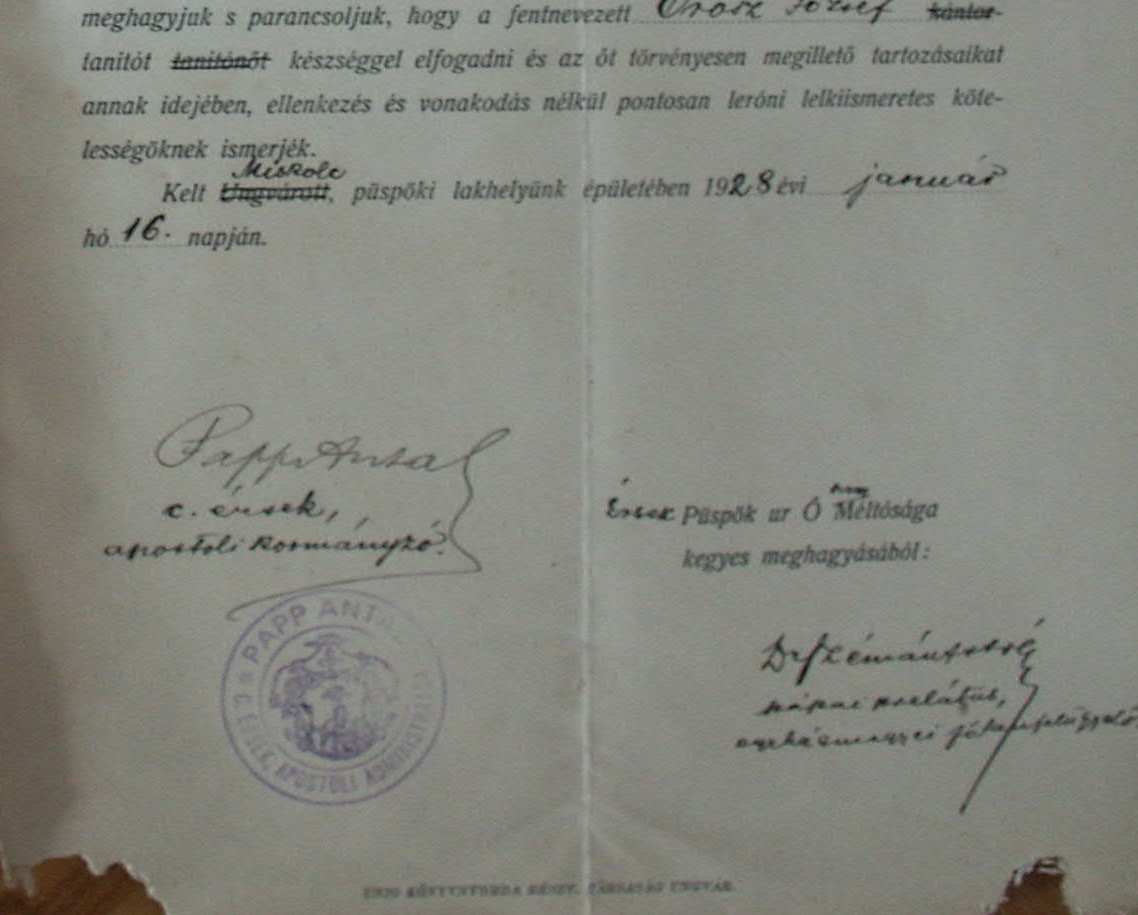 meghagyjuk s parancsoljuk, hogy a fentnevezett Orosz József kántor-
tanitót tanitónőt készséggel elfogadni és az őt törvényesen megillető tartozásaikat
annak idejében, ellenkezés és vonakodás nélkül pontosan leróni lelkiismeretes köte-
lességöknek ismerjék.
Miskolc
Kelt Ungvárott, püspöki lakhelyünk épületében 1928 évi január
hó 16. napján.
Papp Antal
c. érsek,
apostoli kormányzó.
Érsek Püspök ur Ő Méltósága
kegyes meghagyásából:
PAPP ANTAL
C. ÉRSEK, APOSTOLI
pápai prelátus,
egyházmegyei
UNIO KÖNYVNYOMDA RÉSZV. TÁRSASÁG UNGVÁR.